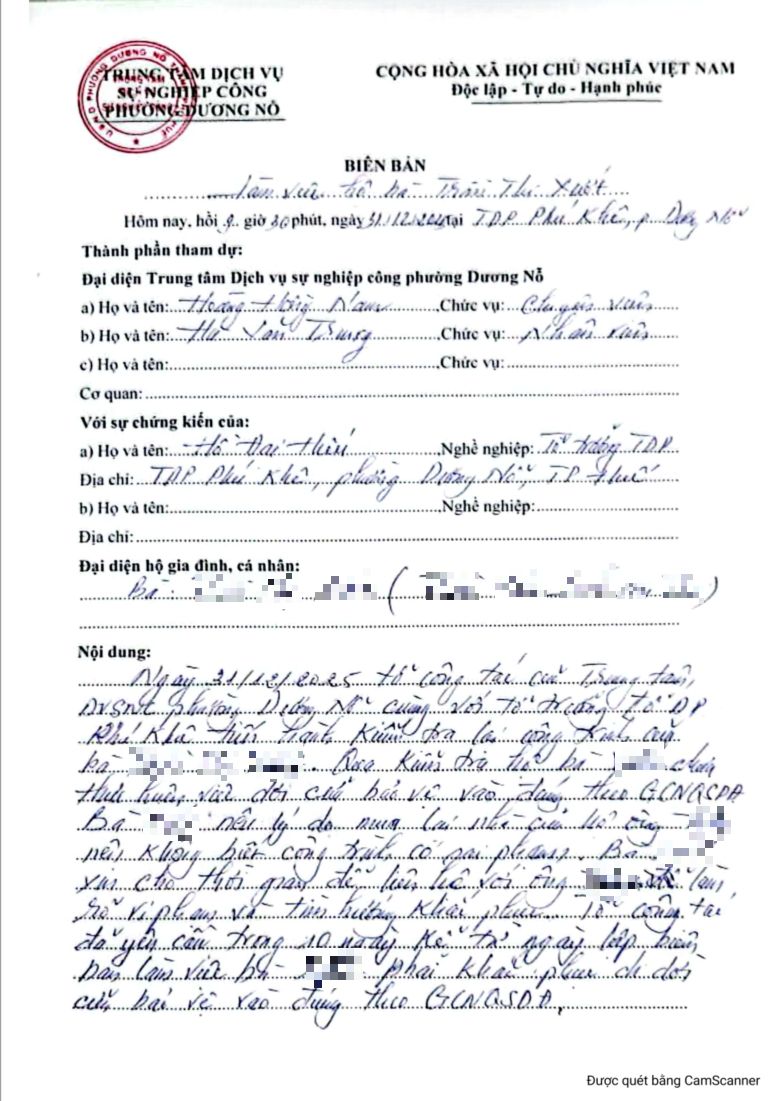 TRUNG TÂM DỊCH VỤ
SỰ NGHIỆP CÔNG
PHƯỜNG DƯƠNG NỖ
CỘNG HÒA XÃ HỘI CHỦ NGHĨA VIỆT NAM
Độc lập - Tự do - Hạnh phúc
BIÊN BẢN
Làm việc hộ bà Trần Thị Xướt
Hôm nay, hồi 9 giờ 30 phút, ngày 31/12/2025 tại TDP Phú Khê, p. Dương Nỗ
Thành phần tham dự:
Đại diện Trung tâm Dịch vụ sự nghiệp công phường Dương Nỗ
a) Họ và tên: Hoàng Hồng Nam Chức vụ: Chuyên viên
b) Họ và tên: Hồ Văn Trung Chức vụ: Nhân viên
c) Họ và tên: Chức vụ:
Cơ quan:
Với sự chứng kiến của:
a) Họ và tên: Hồ Đại Hiếu Nghề nghiệp: Tổ trưởng TDP
Địa chỉ: TDP Phú Khê, phường Dương Nỗ, TP Huế
b) Họ và tên: Nghề nghiệp:
Địa chỉ:
Đại diện hộ gia đình, cá nhân:
Bà: ( )
Nội dung:
Ngày 31/12/2025 tổ công tác của Trung tâm
DVSNC phường Dương Nỗ cùng với tổ trưởng tổ DP
Phú Khê tiến hành kiểm tra lại công trình của
bà . Qua kiểm tra hộ bà chưa
thực hiện việc dời cửa bảo vệ vào đúng theo GCNQSDĐ
Bà nêu lý do mua lại nhà của hộ ông
nên không biết công trình có sai phạm. Bà
xin cho thời gian để liên hệ với ông để làm
rõ vi phạm và tìm hướng khắc phục. Tổ công tác
đã yêu cầu trong 10 ngày kể từ ngày lập biên
bản làm việc bà phải khắc phục di dời
cửa bảo vệ vào đúng theo GCNQSDĐ.
Được quét bằng CamScanner